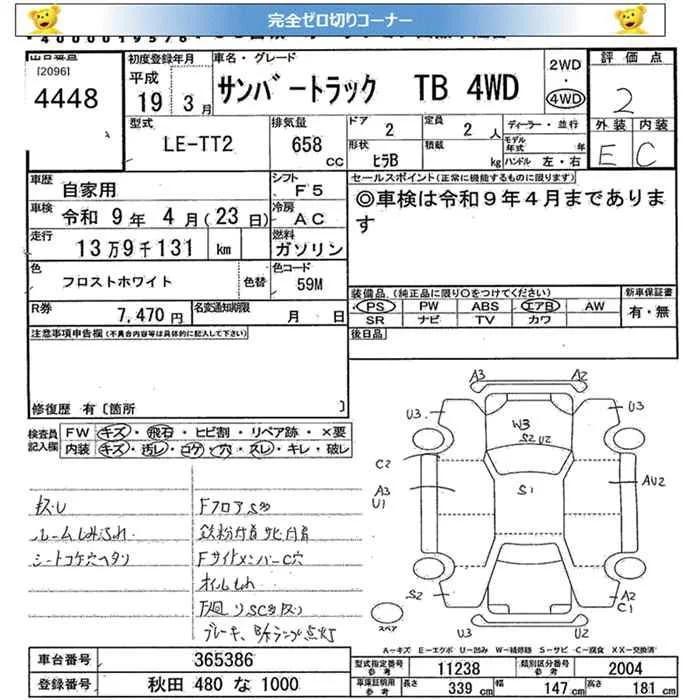 完全ゼロ切りコーナー
[2096]
4448
初度登録年月
平成 19年 3月
車名・グレード
サンバートラック TB 4WD
2WD ・ 4WD
評価点
2
型式
LE-TT2
排気量
658 CC
ドア 2
定員 2 人
形状 ヒラB
積載 kg
ディーラー・並行
モデル年式 年
ハンドル 左・右
外装 内装
E C
車歴 自家用
シフト F5
車検 令和 9年 4月(23日)
冷房 AC
走行 13万9千131 km
燃料 ガソリン
色 フロストホワイト
色替
色コード 59M
R券 7,470円
名変通知期限 月 日
セールスポイント(正常に機能するものに限ります)
◎車検は令和9年4月まであります
装備品(純正品に限り○をつけてください)
PS PW ABS エアB AW
SR ナビ TV カワ
新車保証書
有・無
後日品
注意事項申告欄(不具合内容等は具体的に記入して下さい)
修復歴 有〔箇所 〕
検査員記入欄
FW キズ・飛石・ヒビ割・リペア跡・×要
内装 キズ・汚レ・コゲ・穴・スレ・キレ・破レ
ルームしみふれ
シートコゲ穴ヘタリ
FフロアS多
鉄粉付着 サビ付着
FサイドメンバーC穴
オイルしみ
F廻りSC多数
A3 A2
U3 U3
W3
S2 U2
C2
A3
U1
S1
AU2
S2
A2
C1
U3 U2
スペア
A=キズ E=エクボ U=凹み W=補修跡 S=サビ C=腐食 XX=交換済
車台番号 365386
登録番号 秋田 480 な 1000
型式指定番号 参考 11238
類別区分番号 参考 2004
車庫証明用 参考 長さ 339 cm 幅 147 cm 高さ 181 cm